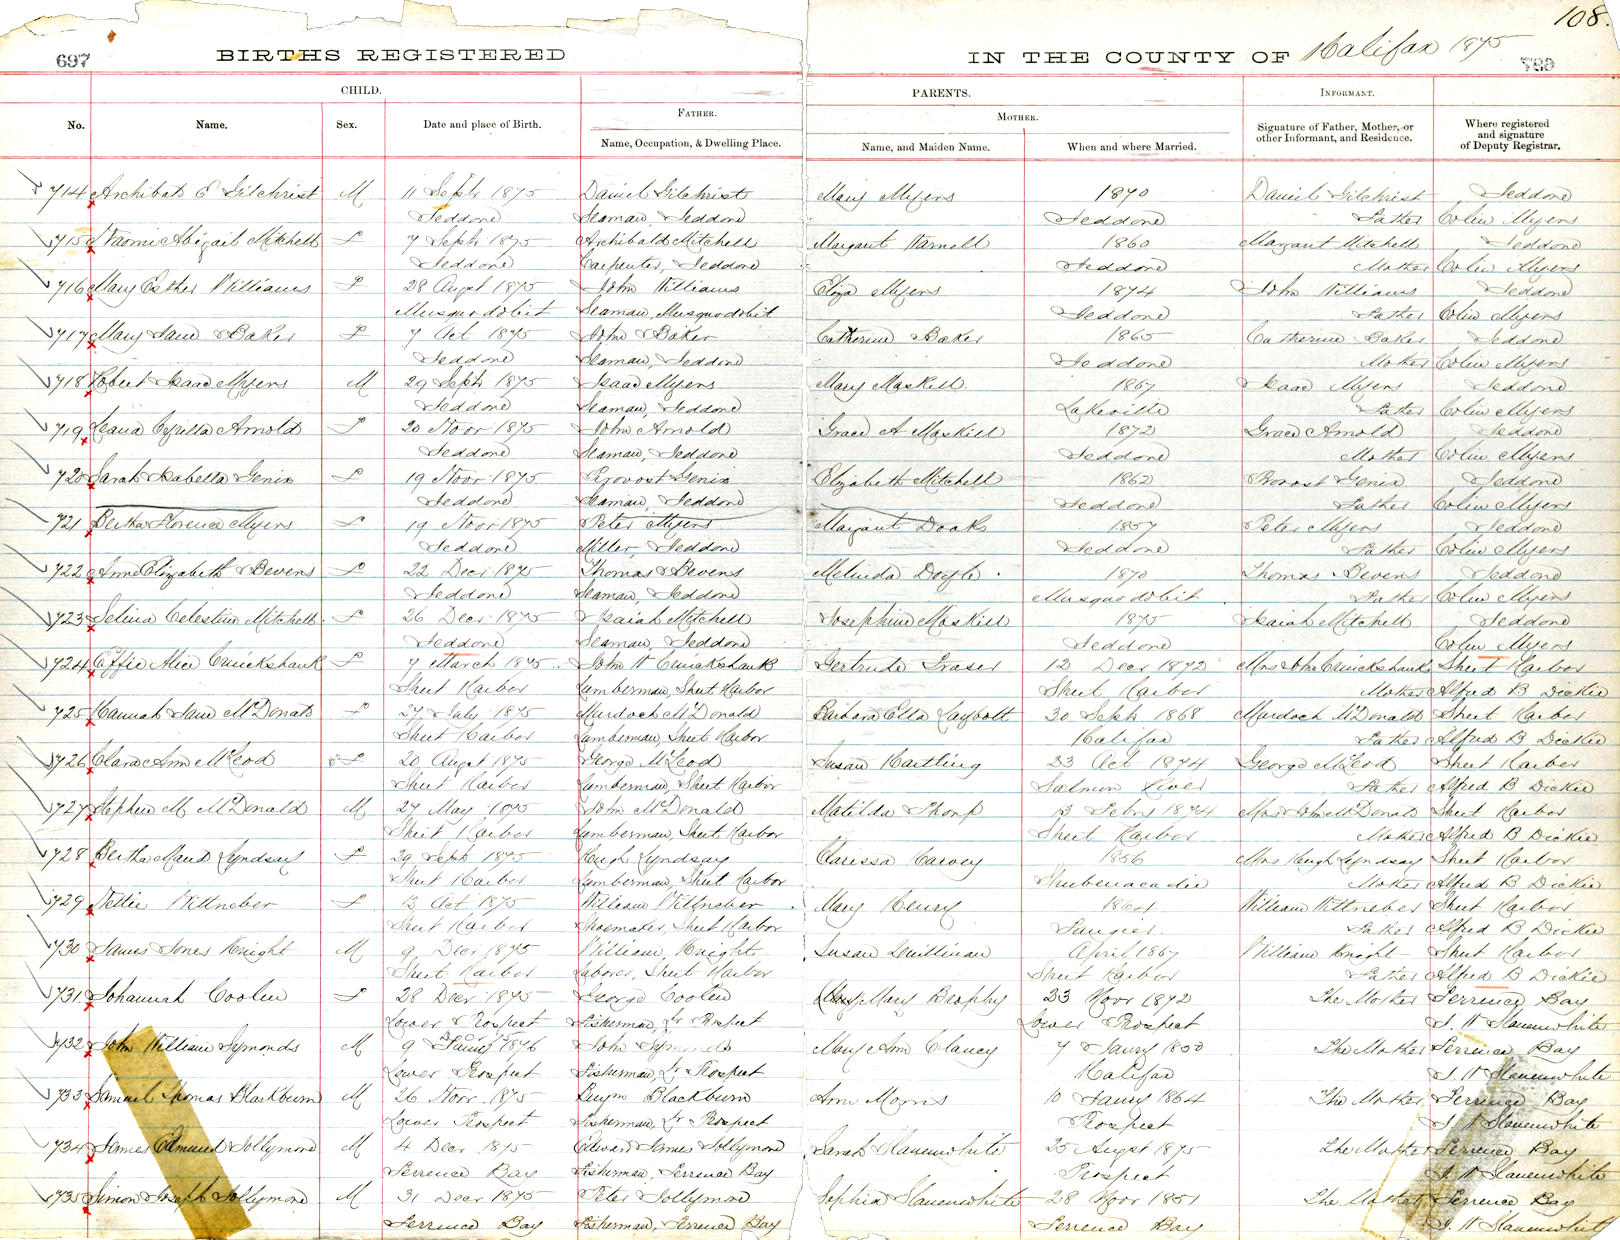 108.
697 BIRTHS REGISTERED IN THE COUNTY OF Halifax 1875 789
CHILD. PARENTS. INFORMANT.
No. Name. Sex. Date and place of Birth. FATHER. Name, Occupation, & Dwelling Place. MOTHER. Name, and Maiden Name. When and where Married. Signature of Father, Mother, or other Informant, and Residence. Where registered and signature of Deputy Registrar.
714 Archibald E Gilchrist M 11 Sept 1875 Daniel Gilchrist Mary Myers 1870 Daniel Gilchrist Jeddore
Jeddore Seaman Jeddore Jeddore Father Colin Myers
715 Naomi Abigail Mitchell F 7 Sept 1875 Archibald Mitchell Margaret 1860 Margaret Mitchell Jeddore
Jeddore Carpenter, Jeddore Jeddore Mother Colin Myers
716 Mary Esther Williams F 28 Augst 1875 John Williams Eliza Myers 1874 John Williams Jeddore
Musquodobit Seaman, Musquodobit Jeddore Father Colin Myers
717 Mary Jane Baker F 7 Oct 1875 John Baker Catherine Baker 1865 Catherine Baker Jeddore
Jeddore Seaman, Jeddore Jeddore Mother Colin Myers
718 Robert Isaac Myers M 29 Sept 1875 Isaac Myers Mary Maskill 1867 Isaac Myers Jeddore
Jeddore Seaman, Jeddore Lakeville Father Colin Myers
719 Arnold F 20 Novr 1875 John Arnold Grace A Maskill 1872 Grace Arnold Jeddore
Jeddore Seaman, Jeddore Jeddore Mother Colin Myers
720 Sarah Isabella Genix F 19 Novr 1875 Provost Genix Elizabeth Mitchell 1862 Provost Genix Jeddore
Jeddore Seaman, Jeddore Jeddore Father Colin Myers
721 Bertha Florence Myers F 19 Novr 1875 Peter Myers Margaret Dooks 1857 Peter Myers Jeddore
Jeddore Miller, Jeddore Jeddore Father Colin Myers
722 Anne Elizabeth Bevens F 22 Decr 1875 Thomas Bevens Melinda Doyle 1870 Thomas Bevens Jeddore
Jeddore Seaman, Jeddore Musquodobit Father Colin Myers
723 Selina Celestine Mitchell F 26 Decr 1875 Isaiah Mitchell Josephine Maskill 1875 Isaiah Mitchell Jeddore
Jeddore Seaman, Jeddore Jeddore Colin Myers
724 Effie Alice Cruickshank F 7 March 1875 John W Cruickshank Gertrude Fraser 12 Decr 1872 Mrs John Cruickshank Sheet Harbor
Sheet Harbor Lumberman, Sheet Harbor Sheet Harbor Mother Alfred B Dickie
725 Hannah Jane McDonald F 27 July 1875 Murdoch McDonald Barbara Etta Laybolt 30 Sept 1868 Murdoch McDonald Sheet Harbor
Sheet Harbor Lumberman, Sheet Harbor Halifax Father Alfred B Dickie
726 Clara Ann McLeod F 20 Augst 1875 George McLeod Susan Hartling 23 Oct 1874 George McLeod Sheet Harbor
Sheet Harbor Lumberman, Sheet Harbor Salmon River Father Alfred B Dickie
727 Stephen M McDonald M 27 May 1875 John McDonald Matilda 13 Febry 1874 Mrs John McDonald Sheet Harbor
Sheet Harbor Lumberman, Sheet Harbor Sheet Harbor Mother Alfred B Dickie
728 Bertha Maud Lyndsay F 29 Sept 1875 Hugh Lyndsay Clarissa 1856 Mrs Hugh Lyndsay Sheet Harbor
Sheet Harbor Lumberman, Sheet Harbor Shubenacadie Mother Alfred B Dickie
729 Nettie Wittneber F 13 Oct 1875 William Wittneber Mary Henry 1864 William Wittneber Sheet Harbor
Sheet Harbor Shoemaker, Sheet Harbor Tangier Father Alfred B Dickie
730 James Jones Knight M 9 Decr 1875 William Knight Susan Quillinan April 1867 William Knight Sheet Harbor
Sheet Harbor Laborer, Sheet Harbor Sheet Harbor Father Alfred B Dickie
731 Johannah Coolen F 28 Decr 1875 George Coolen Mary Brophy 23 Novr 1872 The Mother Terrence Bay
Lower Prospect Fisherman, Lr Prospect Lower Prospect J. W Slauenwhite
732 John William Symonds M 9 Jany 1876 John Symonds Mary Ann Clancy 7 Jany 1850 The Mother Terrence Bay
Lower Prospect Fisherman, Lr Prospect Halifax J. W Slauenwhite
733 Samuel Thomas Blackburn M 26 Novr 1875 Benjm Blackburn Ann Morris 10 Jany 1864 The Mother Terrence Bay
Lower Prospect Fisherman, Lr Prospect Prospect J. W Slauenwhite
734 James Edmund Jollymore M 4 Decr 1875 Edward James Jollymore Sarah Slauenwhite 25 Augst 1875 The Mother Terrence Bay
Terrence Bay Fisherman, Terrence Bay Prospect J. W Slauenwhite
735 Simon Joseph Jollymore M 31 Decr 1875 Peter Jollymore Sophia Slauenwhite 28 Novr 1851 The Mother Terrence Bay
Terrence Bay Fisherman, Terrence Bay Terrence Bay J. W Slauenwhite